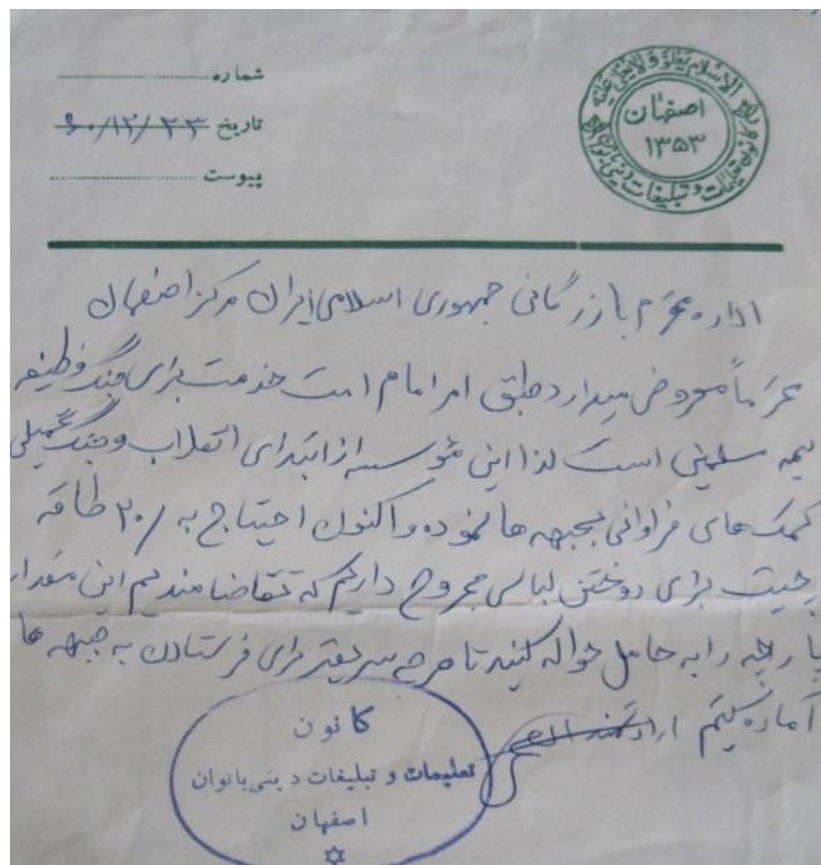 شماره
تاریخ ۶۰/۱۲/۲۳
پیوست
الاسلام یعلو و لا یعلی علیه
اصفهان
۱۳۵۳
کانون تعلیمات و تبلیغات دینی بانوان
اداره محترم بازرگانی جمهوری اسلامی ایران مرکز اصفهان
محترماً معروض میدارد طبق امر امام امت خدمت برای جنگ وظیفه
همه مسلمین است لذا این مؤسسه از ابتدای انقلاب و جنگ تحمیلی
کمک های فراوانی بجبهه ها نموده و اکنون احتیاج به ۲۰/ طاقه
چیت برای دوختن لباس مجروح داریم که تقاضامندیم این مقدار
پارچه را به حامل حواله کنید تا هرچه سریعتر برای فرستادن به جبهه ها
آماده کنیم
کانون
تعلیمات و تبلیغات دینی بانوان
اصفهان